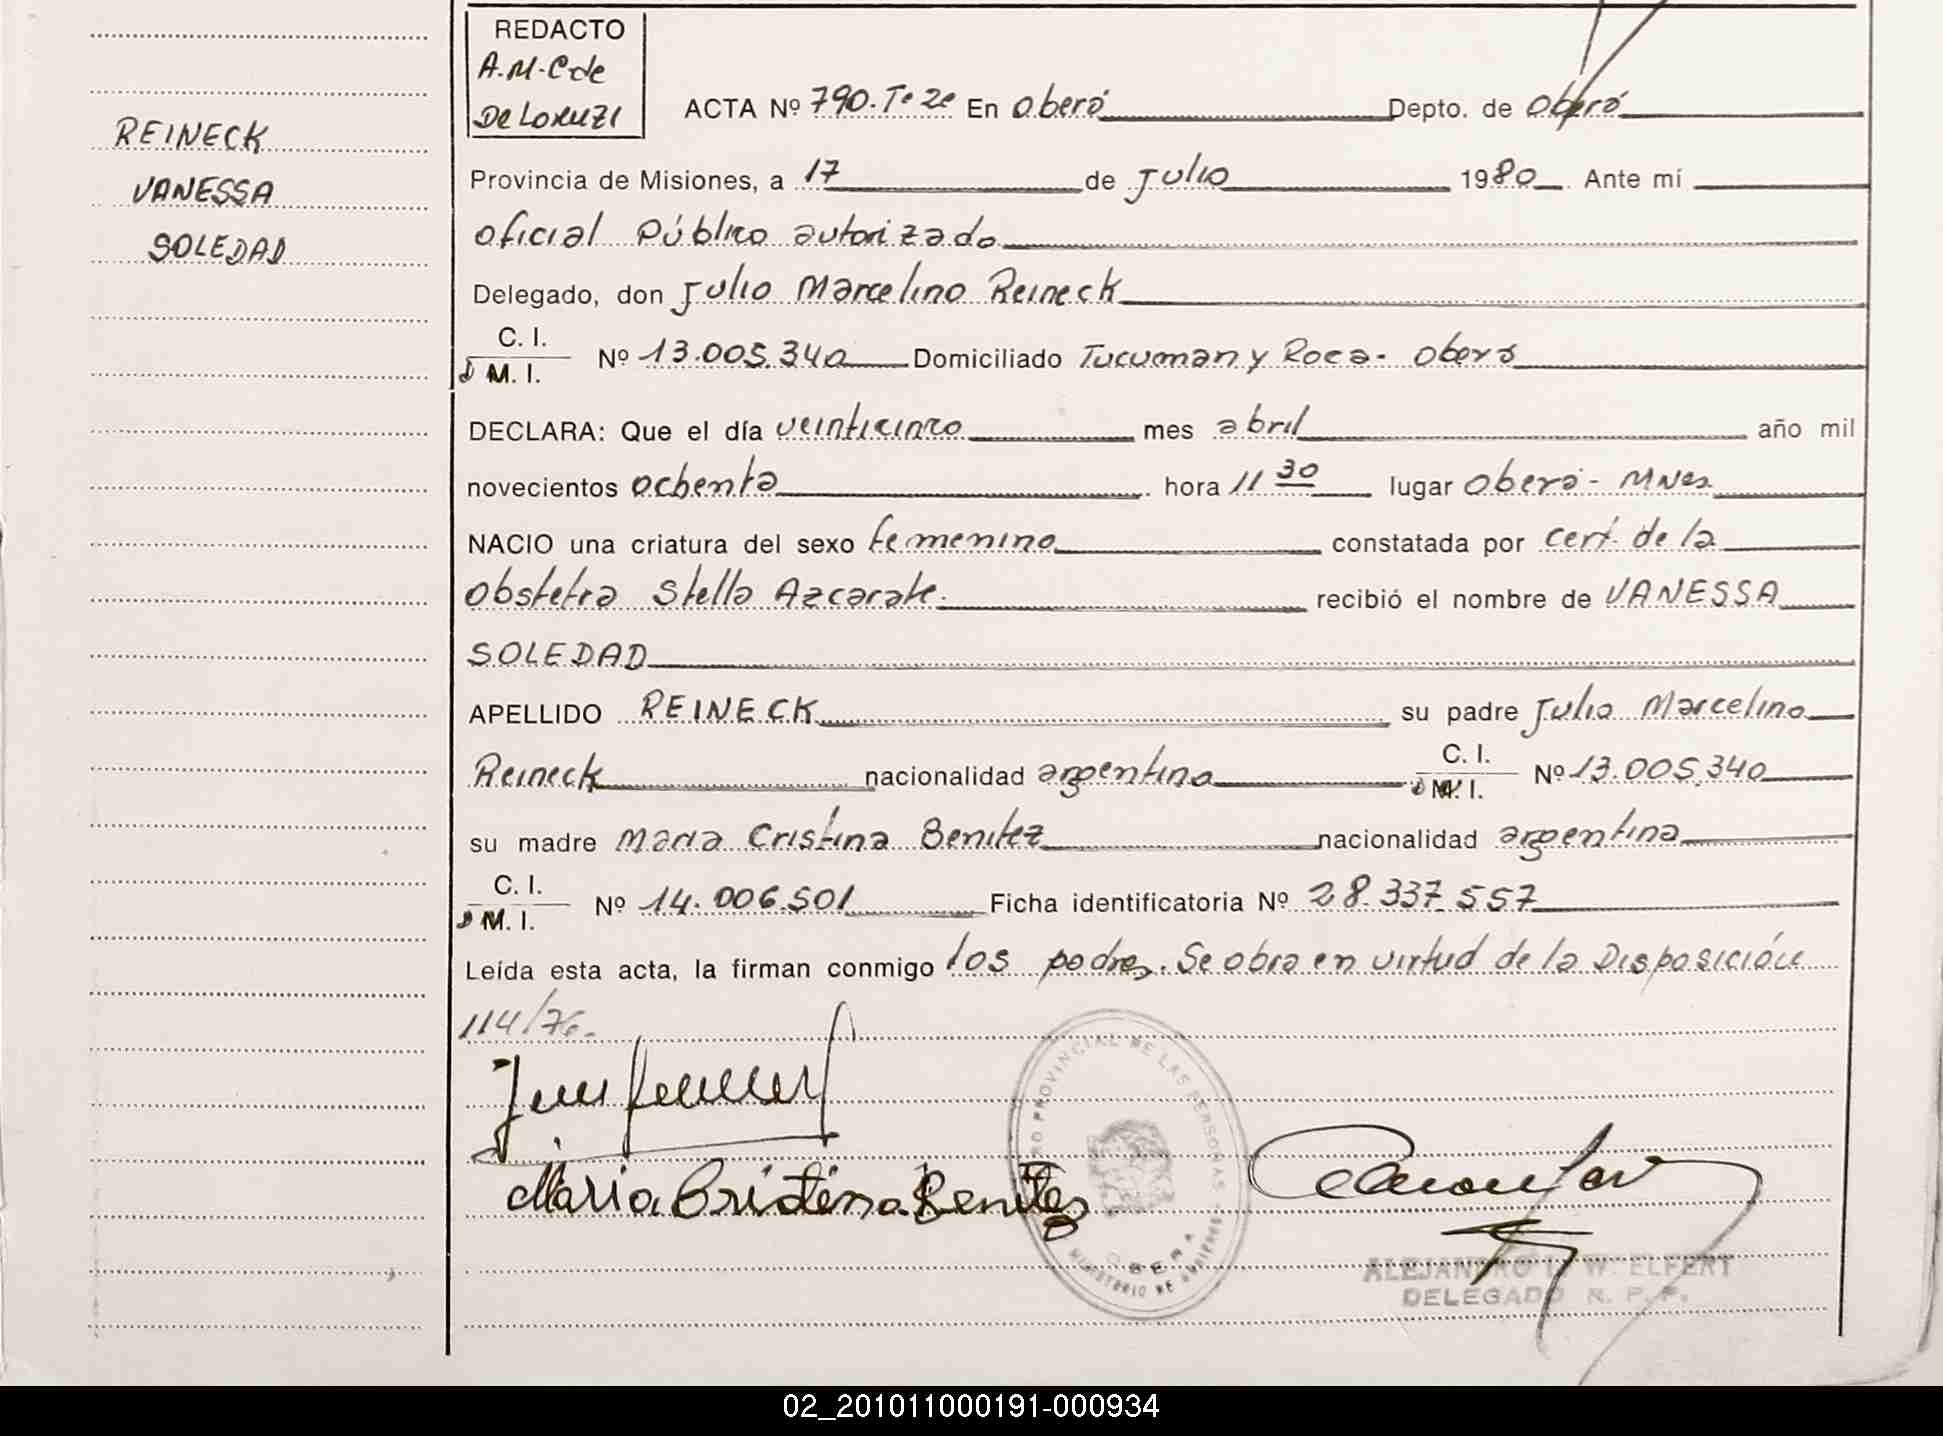 REINECK
VANESSA
SOLEDAD
REDACTO
A.M.C de
De Lorenzi
ACTA Nº 790.Tº 2º En Oberá Depto. de Oberá
Provincia de Misiones, a 17 de Julio 1980 Ante mí
oficial Público autorizado
Delegado, don Julio Marcelino Reineck
C. I.
D M. I. Nº 13.005.340 Domiciliado Tucuman y Roca - Oberá
DECLARA: Que el día veinticinco mes abril año mil
novecientos ochenta hora 11 30 lugar Oberá - Mnes
NACIO una criatura del sexo femenino constatada por cert. de la
Obstetra Stella Azcarate. recibió el nombre de VANESSA
SOLEDAD
APELLIDO REINECK su padre Julio Marcelino
Reineck nacionalidad argentina C. I.
D M. I. Nº 13.005.340
su madre Maria Cristina Benitez nacionalidad argentina
C. I.
D M. I. Nº 14.006.501 Ficha identificatoria Nº 28.337.557
Leída esta acta, la firman conmigo los padres. Se obra en virtud de la Disposición
114/76.
Maria Cristina Benitez
PROVINCIAL DE LAS PERSONAS
OBERA
MINISTERIO DE GOBIERNO
ALEJANDRO W. ELFERT
DELEGADO R. P. P.
02_201011000191-000934